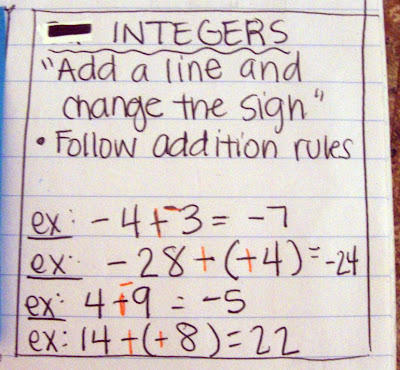 INTEGERS
"Add a line and
change the sign"
• Follow addition rules
ex: -4+-3= -7
ex: -28+(+4)=-24
ex: 4+-9 = -5
ex: 14+(+8)=22